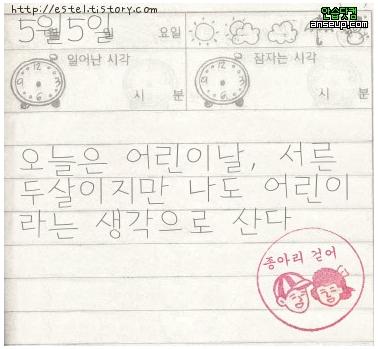 http://estel.tistory.com
5월5일 요일
안습닷컴
anseup.com
일어난 시각 잠자는 시각
시 분 시 분
오늘은 어린이날, 서른
두살이지만 나도 어린이
라는 생각으로 산다
종아리 걷어